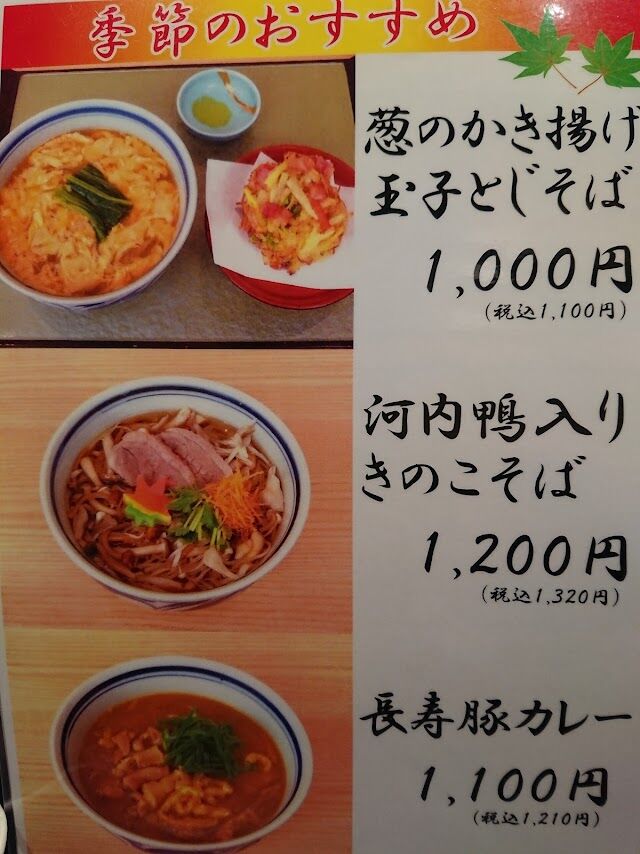 季節のおすすめ
葱のかき揚げ
玉子とじそば
1,000円
(税込1,100円)
河内鴨入り
きのこそば
1,200円
(税込1,320円)
長寿豚カレー
1,100円
(税込1,210円)